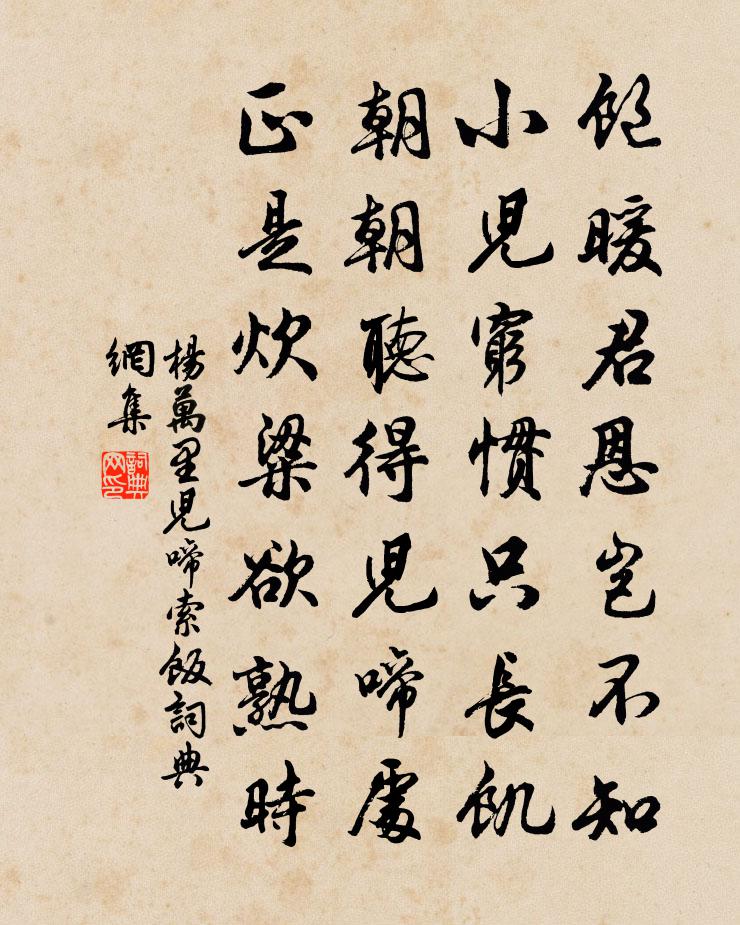 飽暖君恩豈不知
小兒窮慣只長飢
朝朝聽得兒啼處
正是炊粱欲熟時
楊萬里兒啼索飯詞典
網集
詞典網印